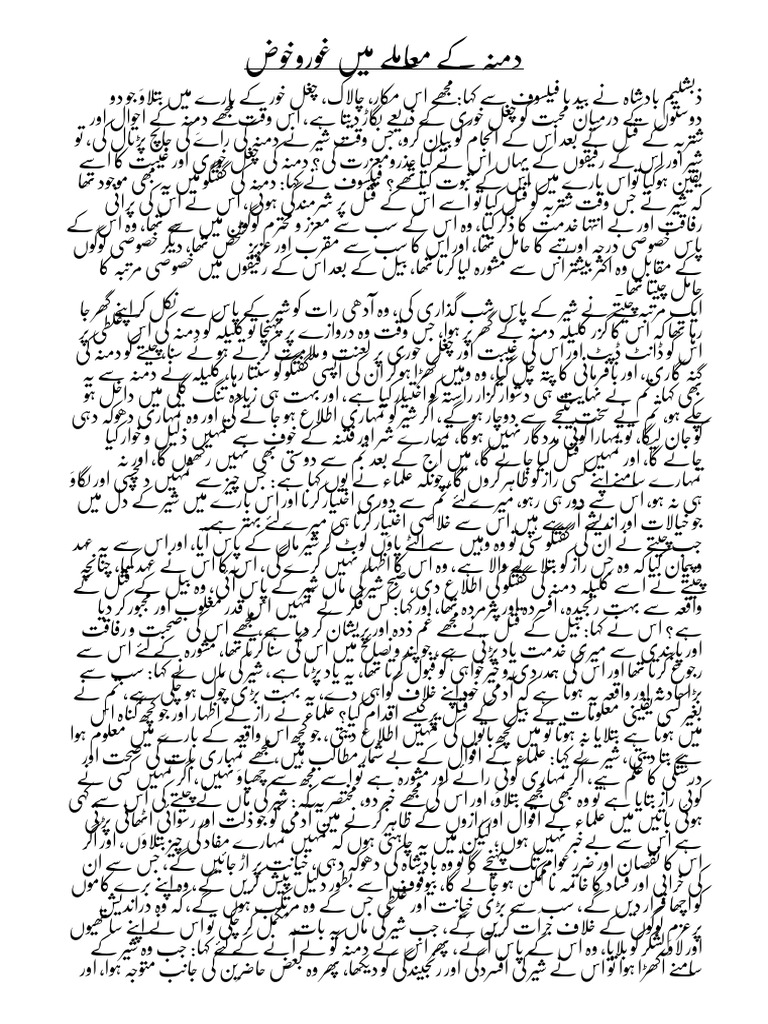 دمنہ کے معاملے میں غوروخوض
ذبشلیم بادشاہ نے بیدبا فیلسوف سے کہا: مجھے اس مکار، چالاک، چغل خور کے بارے میں بتلاؤ جو دو
دوستوں کے درمیان محبت کو چغل خوری کے ذریعے بگاڑ دیتا ہے، اس وقت مجھے دمنہ کے احوال اور
شتربہ کے قتل کے بعد اس کے انجام کو بیان کرو، جس وقت شیر نے دمنہ کی رائے کی جانچ پڑتال کی، تو
شیر اور اس کے رفیقوں کے یہاں اس نے کیا عذرومعزرت کی؟ دمنہ کی چغل خوری اور غیبت کا اسے
یقین ہوگیا تو اس بارے میں اس کے ثبوت کیا تھے؟ فیلسوف نے کہا: دمنہ کی گفتگو میں یہ بھی موجود تھا
کہ شیر نے جس وقت شتربہ کو قتل کیا تو اسے اس کے قتل پر شرمندگی ہوئی، اس نے اس کی پرانی
رفاقت اور بے انتہا خدمت کا ذکر کیا، وہ اس کے سب سے معزز و محترم لوگوں میں سے تھا، وہ اس کے
پاس خصوصی درجہ اور رتبے کا حامل تھا، اور اس کا سب سے مقرب اور عزیز شخص تھا، دیگر خصوصی لوگوں
کے مقابل وہ اکثر بیشتر اس سے مشورہ لیا کرتا تھا، بیل کے بعد اس کے رفیقوں میں خصوصی مرتبہ کا
حامل چیتا تھا۔
ایک مرتبہ چیتے نے شیر کے پاس شب گذاری کی، وہ آدھی رات کو شیر کے پاس سے نکل کر اپنے گھر جا
رہا تھا کہ اس کا گزر کلیلہ دمنہ کے گھر پر ہوا، جس وقت وہ دروازے پر پہنچا تو کلیلہ کو دمنہ کی اس غلطی پر
اس کو ڈانٹ ڈپٹ اور اس کی غیبت اور چغل خوری پر لعنت و ملامت کرتے ہوئے سنا، چیتے کو دمنہ کی
گنہ گاری، اور نافرمانی کا پتہ چل گیا، وہ وہیں کھڑا ہو کر ان کی آپسی گفتگو کو سنتا رہا، کلیلہ نے دمنہ سے یہ
بھی کہا: تم نے نہایت ہی دشوار گزار راستہ کو اختیار کیا ہے، اور بہت ہی زیادہ تنگ گلی میں داخل ہو
چکے ہو، تم نے سخت نتیجے سے دوچار ہوگے، اگر شیر کو تمہاری اطلاع ہو جائے گی اور وہ تمہاری دھوکہ دہی
کو جان لیگا، تو تمہارا کوئی مددگار نہیں ہوگا، تمہارے شر اور فتنہ کے خوف سے تمہیں ذلیل و خوار کیا
جائے گا، اور تمہیں قتل کیا جائے گا، میں آج کے بعد تم سے دوستی بھی نہیں رکھوں گا، اور نہ
تمہارے سامنے اپنے کسی راز کو ظاہر کروں گا، چونکہ علماء نے یوں کہا ہے: جس چیز سے تمہیں دلچسپی اور لگاؤ
ہی نہ ہو، اس سے دور ہی رہو، میرے لئے تم سے دوری اختیار کرنا اور اس بارے میں شیر کے دل میں
جو خیالات اور اندیشے آرہے ہیں اس سے خلاصی اختیار کرنا ہی میرے لئے بہتر ہے۔
جب چیتے نے ان کی گفتگو سنی تو وہ وہیں سے الٹے پاؤں لوٹ کر شیر ماں کے پاس آیا، اور اس سے یہ عہد
و پیمان کیا کہ وہ جس راز کو بتلانے والا ہے، وہ اس کا اظہار نہیں کرے گی، اس کا اس نے عہد کیا، چنانچہ
چیتے نے اسے کلیلہ دمنہ کی گفتگو کی اطلاع دی، صبح شیر کی ماں شیر کے پاس آئی، وہ بیل کے قتل کے
واقعہ سے بہت رنجیدہ، افسردہ اور پژمردہ تھا، اور کہا: کس فکر نے تمہیں اس قدر مغلوب اور مجبور کر دیا
ہے؟ اس نے کہا: بیل کے قتل نے مجھے غم زدہ اور پریشان کر دیا ہے، مجھے اس کی صحبت ورفاقت
اور پابندی سے میری خدمت یاد پڑتی ہے، جو پند و نصائح میں اس کی سنا کرتا تھا، مشورہ کے لئے اس سے
رجوع کرتا تھا اور اس کی ہمدردی و خیر خواہی کو قبول کرتا تھا، یہ یاد پڑتا ہے، شیر کی ماں نے کہا: سب سے
بڑا حادثہ اور واقعہ یہ ہوتا ہے کہ آدمی خود اپنے خلاف گواہی دے، یہ بہت بڑی چوک ہو چکی ہے، تم نے
بغیر کسی یقینی معلومات کے بیل کے قتل پر کیسے اقدام کیا؟ علماء نے راز کے اظہار اور جو کچھ گناہ اس
میں ہوتا ہے بتلایا نہ ہوتا تو میں کچھ باتوں کی تمہیں اطلاع دیتی، جو کچھ اس واقعہ کے بارے میں معلوم ہوا
ہے بتا دیتی، شیر نے کہا: علماء کے اقوال کے بے شمار مطالب ہیں، مجھے تمہاری بات کی صحت اور
درستگی کا علم ہے، اگر تمہاری کوئی رائے اور مشورہ ہے تو اسے مجھ سے چھپاؤ نہیں، اگر تمہیں کسی نے
کوئی راز بتایا ہے تو وہ بھی مجھے بتلاؤ، اور اس کی مجھے خبر دو، مختصر یہ کہ: شیر کی ماں نے چیتے کی اس سے کہی
ہوئی باتیں میں علماء کے اقوال اور رازوں کے ظاہر کرنے میں آدمی کو جو ذلت اور رسوائی اٹھانی پڑتی
ہے اس سے بے خبر نہیں ہوں؛ لیکن میں یہ چاہتی ہوں کہ تمہیں تمہارے مفاد کی چیز بتلاؤں، اور اگر
اس کا نقصان اور ضرر عوام تک پہنچے گا تو وہ بادشاہ کی دھوکہ دہی، خیانت پر اڑ جائیں گے، جس سے ان
کی خرابی اور فساد کا خاتمہ ناممکن ہو جائے گا، بیوقوف اسے بطور دلیل پیش کریں گے، وہ اپنے برے کاموں
کو اچھا قرار دیں گے، سب سے بڑی خیانت اور غلطی جس کے وہ مرتکب ہوں گے، کہ وہ دراندیش
پرعزم لوگوں کے خلاف جرات کریں گے، جب شیر کی ماں یہ بات مکمل کر چکی تو اس نے اپنے ساتھیوں
اور لاؤ لشکر کو بلایا، وہ اس کے پاس آئے، پھر اس نے دمنہ کو لے آنے کے لئے کہا: جب وہ شیر کے
سامنے آکھڑا ہوا تو اس نے شیر کی افسردگی اور رنجیدگی کو دیکھا، پھر وہ بعض حاضرین کی جانب متوجہ ہوا، اور